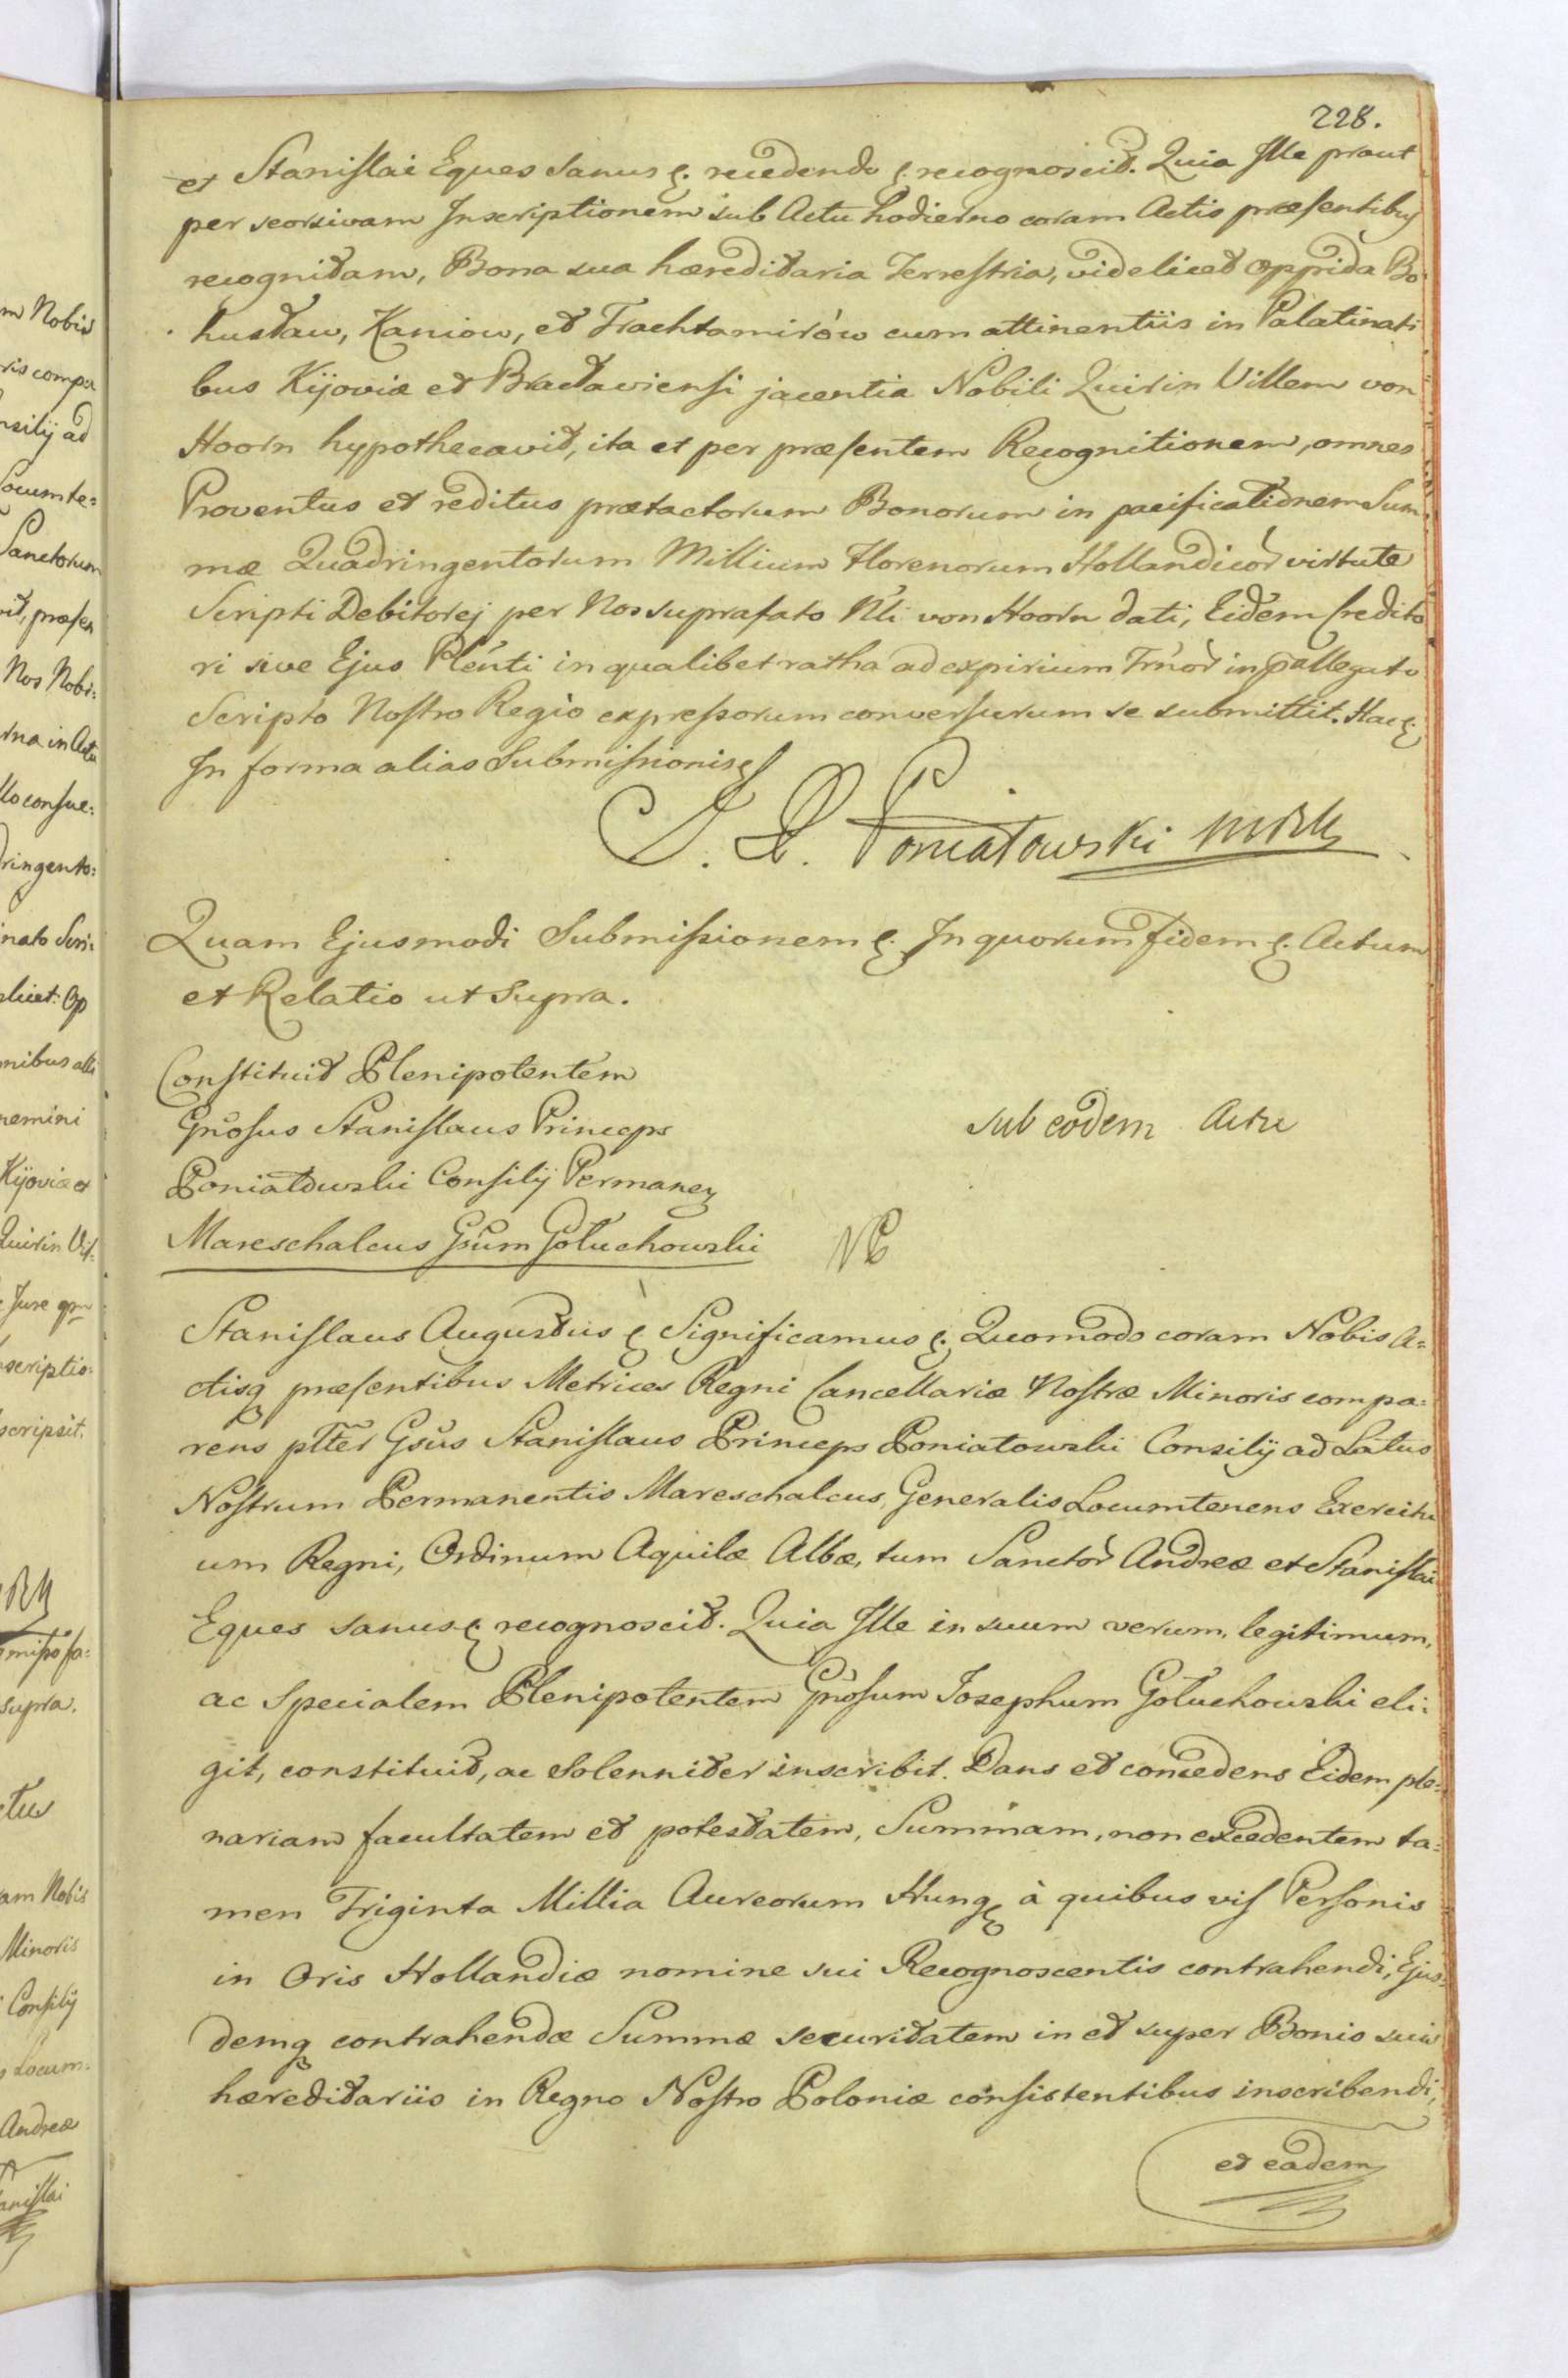 228.
et Stanislai Eques sanus &. recedendo &. recognoscit. Quia Ille prout
per seorsivam Inscriptionem sub Actu hodierno coram Actis præsentibus
recognitam, Bona sua hæreditaria Terrestria, videlicet Oppida Bo-
husław, Kaniow, et Trachtamirów cum attinentiis in Palatinati
bus Kijoviæ et Bracłaviensi jacentia Nobili Quirin Villem von
Hoorn hypothecavit, ita et per præsentem Recognitionem, omnes
Proventus et reditus prætactorum Bonorum in pacificationem Sum-
mæ Quadringentorum Millium Florenorum Hollandicor virtute
Scripti Debitorej per Nos suprafato Nli von Hoorn dati, Eidem Credito
ri sive Ejus Plenti in qualibet ratha ad expirium Trnor in pallegato
Scripto Nostro Regio expressorum conversurum se submittit. Hac &
In forma alias Submissionis &
S. P. Poniatowski MRN
Quam Ejusmodi Submissionem &. In quorum fidem &. Actum
et Relatio ut Supra.
Constituit Plenipotentem
Gnosus Stanislaus Princeps
Poniatowski Consilij Permanen
Mareschalcus Gsum Gołuchowski
sub eodem Actu
Stanislaus Augustus & Significamus &. Quomodo coram Nobis A=
ctisq præsentibus Metrices Regni Cancellariæ Nostræ Minoris compa=
rens plter Gsus Stanislaus Princeps Poniatowski Consilij ad Latus
Nostrum Permanentis Mareschalcus, Generalis Locumtenens Exercitu
um Regni, Ordinum Aquilæ Albæ, tum Sanctor Andreæ et Stanislai
Eques sanus & recognoscit. Quia Ille in suum verum, legitimum,
ac Specialem Plenipotentem Gnosum Josephum Gołuchowski eli=
git, constituit, ac Solenniter inscribit. Dans et concedens Eidem ple=
nariam facultatem et potestatem, Summam, non excedentem ta=
men Triginta Millia Aureorum Hung & à quibus vis Personis
in Oris Hollandiæ nomine sui Recognoscentis contrahendi, Ejus=
demq contrahendæ Summæ securitatem in et super Bonis suis
hæreditariis in Regno Nostro Poloniæ consistentibus inscribendi,
et eadem